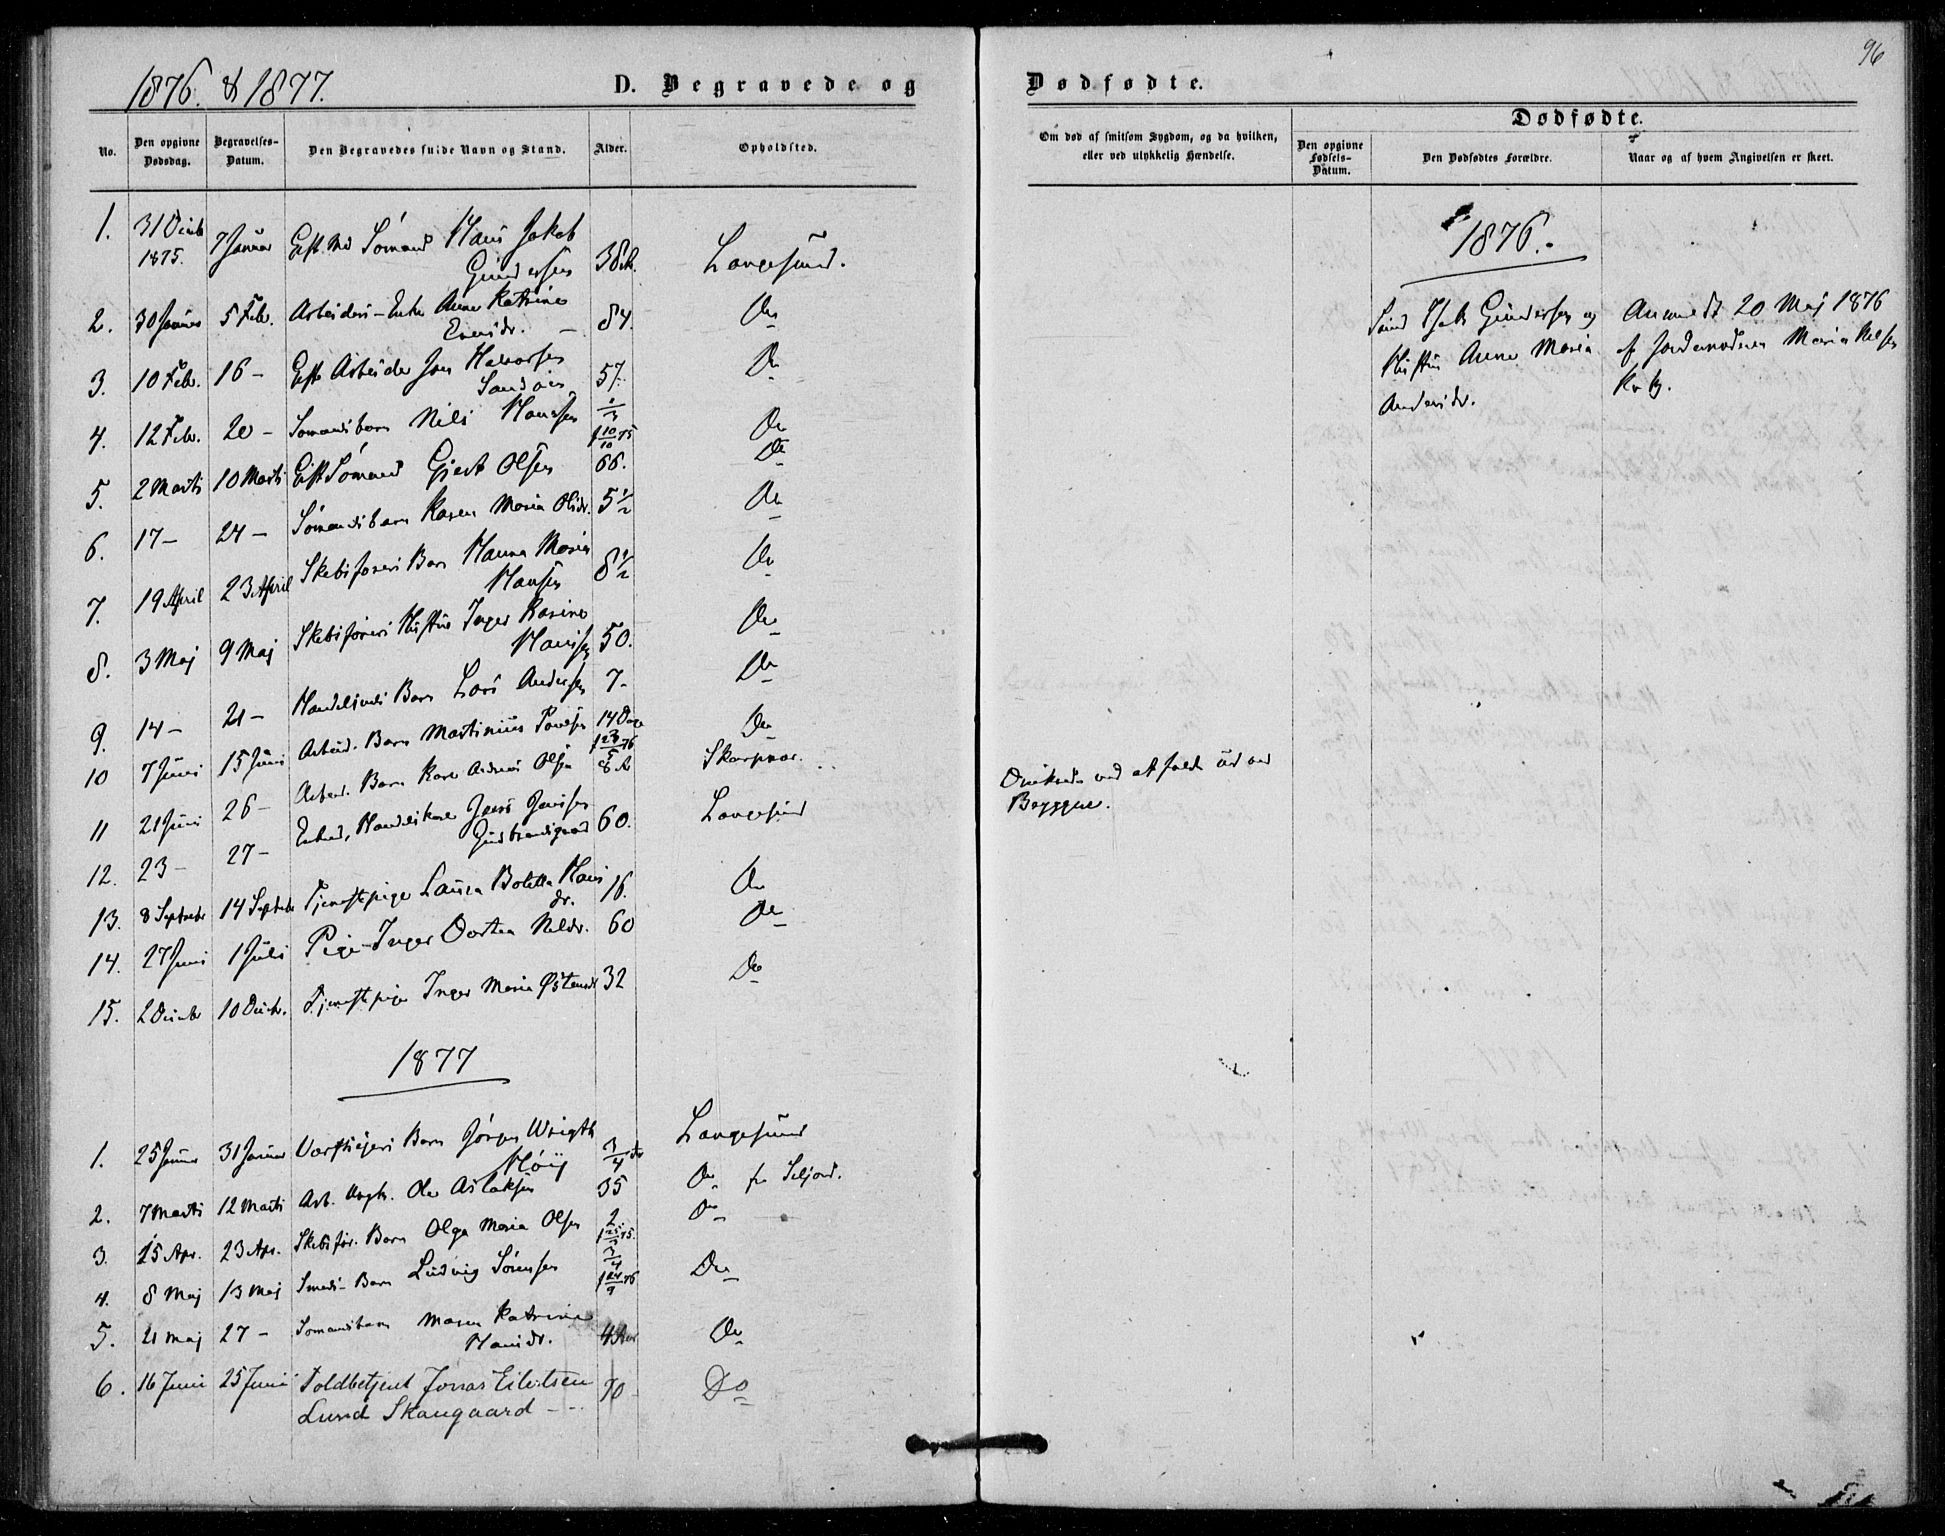 96
1876. & 1877.
D. Begravede og Dødfødte.
No.
Den opgivne Dødsdag.
Begravelses-Datum.
Den Begravedes fulde Navn og Stand.
Alder.
Opholdsted.
Om død af smitsom Sygdom, og da hvilken, eller ved ulykkelig Hændelse.
Dødfødte.
Den opgivne Fødsels-Datum.
Den Dødfødtes Forældre.
Naar og af hvem Angivelsen er skeet.
1. 31 Decbr 1875. 7 Januar Sömand Hans Jakob Gundersen 38 Langesund.
2. 30 Januar 5 Febr. Arbeiders-Enke Anne Katrine Evensdr. 84. Do
3. 10 Febr. 16 - Arbeider Jon Halvorsen 57. Do
4. 12 Febr. 20 - Sömandsbarn Nils Hansen 1/3 10/10 75 Do
5. 2 Marts 10 Marts Sömand Gjert Olsen 66. Do
6. 17 - 24 - Sömandsbarn Karen Maria Olsdr. 5 1/2 Do
7. 19 April 23 April Skibsförers Barn Hanna Maria Hansen 8 1/2 Do
8. 3 Maj 9 Maj Skibsförers Hustru Inger Kasine Hansen 50. Do
9. 14 - 21 - Barn Lars Andersen 7 - Do
10 7 Juni 15 Juni Arbeid. Barn Martinius Poulsen 14 Dage 23/5 76 Do
11 21 Juni 26 - Arbeid. Barn Olsen 8 Skarpnor. Druknede ved at falde ud
Bryggen.
12. 23 - 27 - 60. Langesund
13. 8 Septembr 14 Septembr Tjenestepige Laura Boletta Hansdr. 16. Do
14. 27 Juni 1 Juli Pige Inger Dortea Nilsdr. 60 Do
15. 2 Decembr 10 Decbr. Tjenestepige Inger Maria Östensdr 32 Do
1876.
Gundersen og
Hustru Anne Maria
Andersdr.
Anmeldt 20 Maj 1876
af Jordemoderen Maria Nilsen
1877
1. 25 Januar 31 Januar Barn Jörgen Wrigth Höy 3/4 Langesund
2. 7 Marts 12 Marts Arb. Ungk. Ole Aslaksen 35 Do fra Seljord.
3. 15 Apr. 23 Apr. Skibsför. Barn Olga Maria Olsen 2 Do
4. 8 Maj 13 Maj Smeds-Barn Ludvig Sörensen 3/4 24/9 76 Do
5. 21 Maj 27 - Sömandsbarn Maren Katrine Hansdr. 4 Aar Do
6. 16 Juni 25 Juni Toldbetjent Jonas Eilertsen 70 Do
Lund Skaugaard -